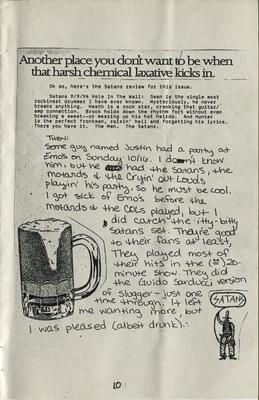 Another place you don't want to be when
that harsh chemical laxative kicks in.
Ok so, here's the Satans review for this issue.
Satans 9/9/94 Hole In The Wall: Sean is the single most
rockinest drummer I have ever known. Mysteriously, he never
breaks anything. Heath is a rock star, cronking that guitar/
amp connection. Brook holds down the rhythm fort without even
breaking a sweat--or messing up his hairdo. And Hunter
is the perfect frontman, raisin' hell and forgetting his lyrics.
There you have it. The Men. The Satans.
THEN:
Some guy named Justin had a party at
Emo's on Sunday 10/16. I don't know
him, but he had the Satans, the
Motards & the Cryin' Out Louds
playin' his party, so he must be cool.
I got sick of Emo's before the
Motards & the COLs played, but I
did catch the itty-bitty
Satans set. They're good
to their fans at least,
They played most of
their hits in the 20-
minute show. They did
the Guido Sarducci version
of Slugger - just one
time through. It left
me wanting more, but
I was pleased (albeit drunk).
SATANS
10